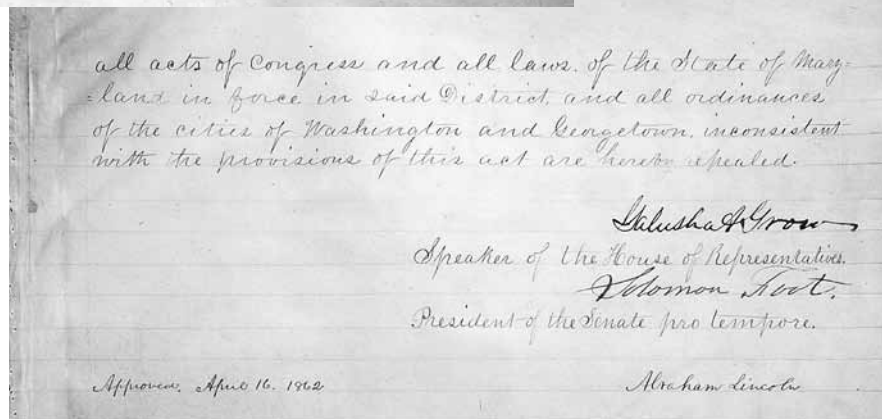 all acts of Congress and all laws. of the State of Mary=
=land in force in said District, and all ordinances
of the cities of Washington and Georgetown. inconsistent
with the provisions of this act are hereby repealed.
Galusha A Grow
Speaker of the House of Representatives.
Solomon Foot.
President of the Senate pro tempore.
Approved. April 16. 1862
Abraham Lincoln